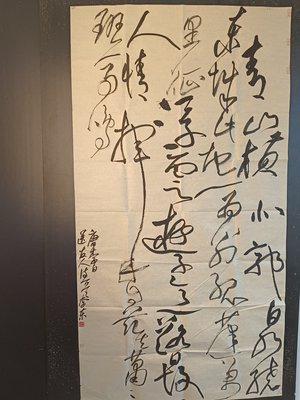 青山横北郭白水繞
東城此地一為別孤蓬萬
里征浮云遊子意落日故
人情揮手自茲去蕭〻
班馬鳴
唐李白
送友人